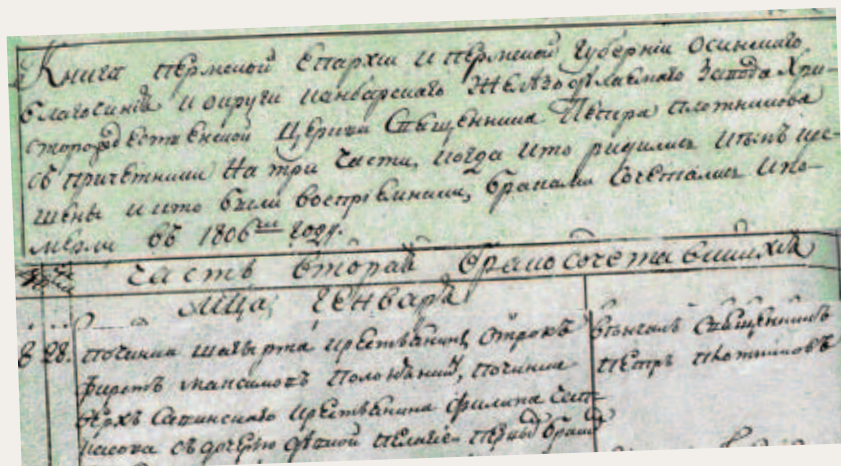 Книга Пермской Епархии и Пермской Губернии Осинскаго
благочиния и округи Камбарскаго Железоделаемаго Завода Хри-
сторождественской Церкви Священника Петра Плотникова
съ причетники На три части, когда кто родились и кемъ кре-
щены и кто были воспрiемники, браками сочетались и по-
мерли въ 1806мъ году.
Часть вторая бракосочетавшихся
мца Генваря
8 28. починка крестьянинъ отрокъ
Максимовъ починка
верхъ крестьянина Филипа
съ дочерью девкой первымъ бракомъ
венчалъ Священникъ
Петръ Плотниковъ